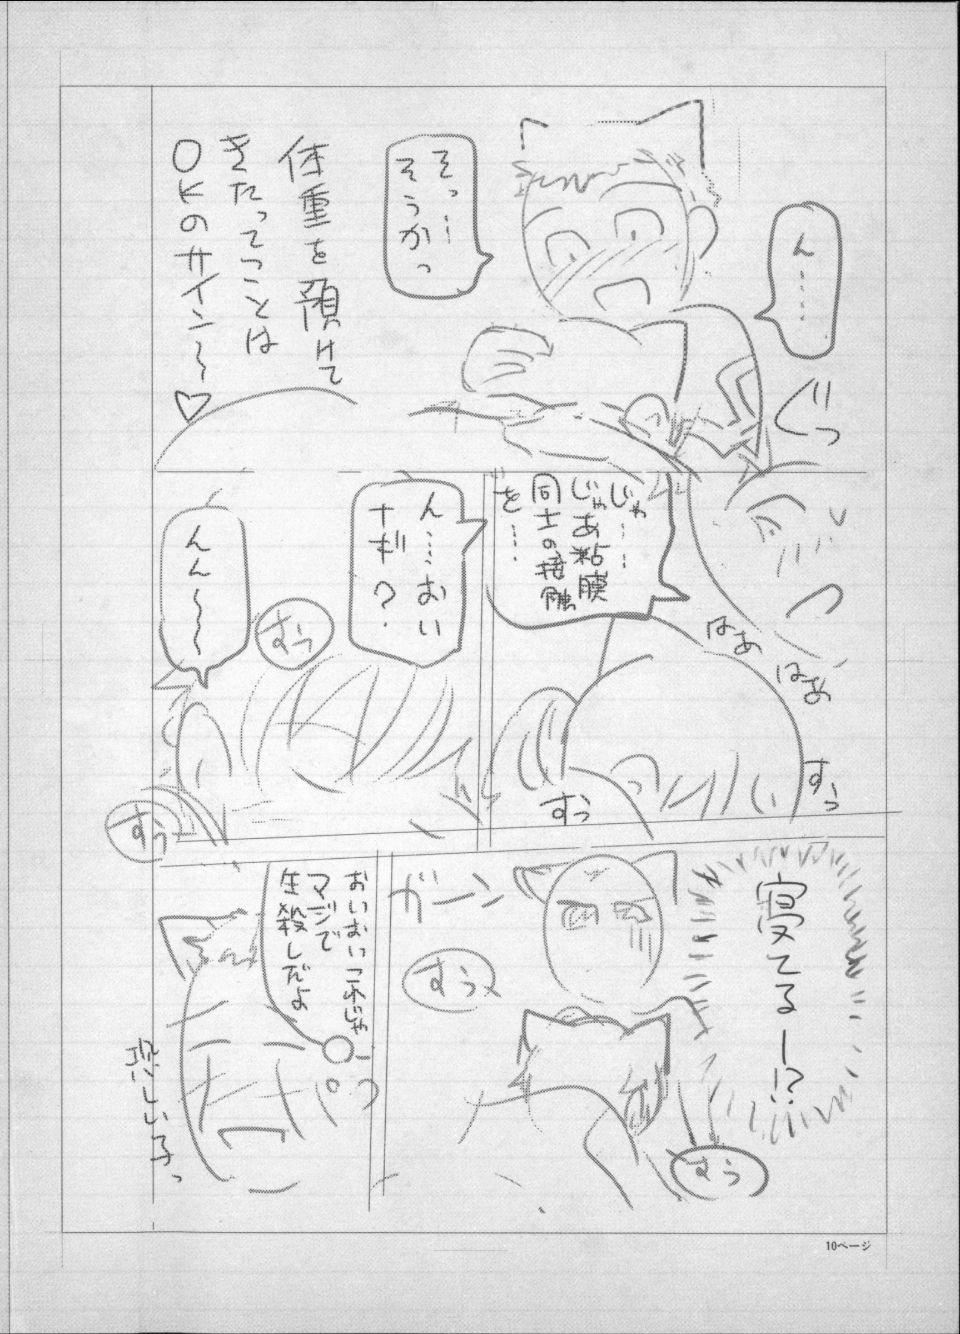 ん……
ぐっ
そっ…
そうかっ
体重を預けて
きたってことは
OKのサイン～♡
じゃ……
じゃあ粘膜
同士の接触
を……
はあ
はあ
すっ
すぅ
ん……おい
ナギ？
すぅ
んん～～
すぅ
寝てるー！？
すぅ
ガーン
すぅ
おいおいこれじゃ
マジで
生殺しだよ
っ
悲しい子っ
10ページ